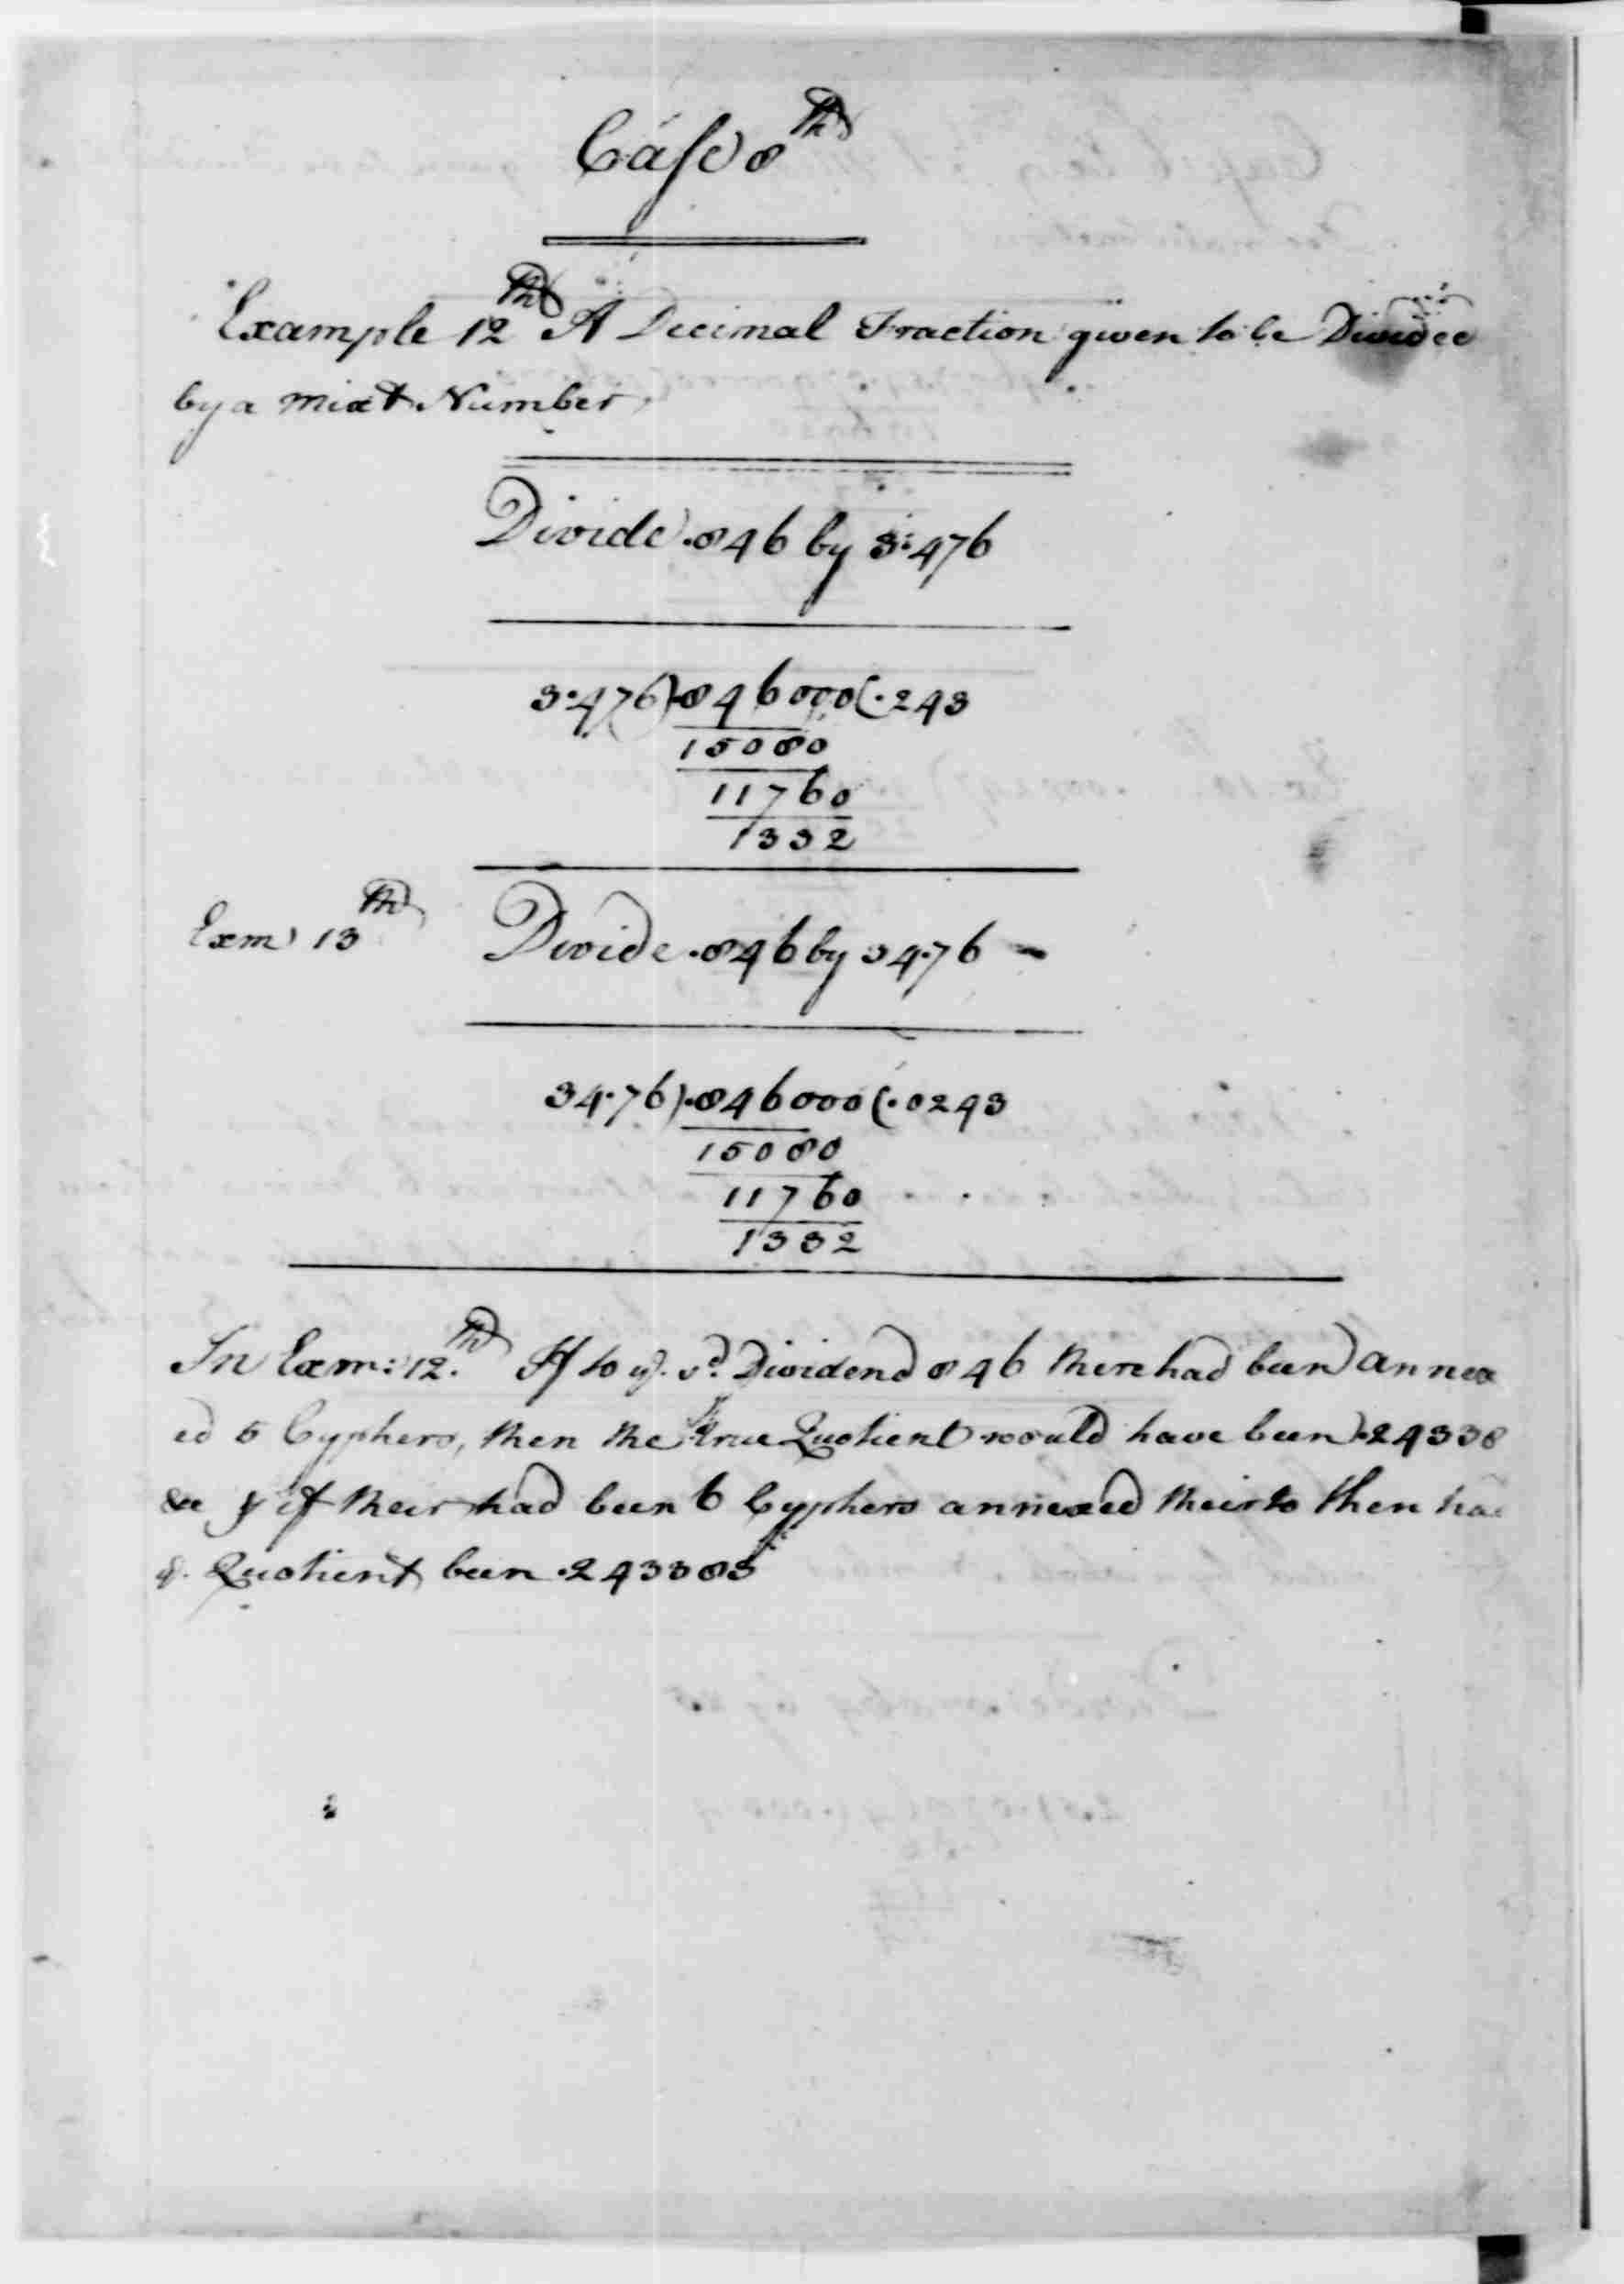 Case 8th
Example 12th A Decimal Fraction given to be Divided
by a Mixt Number
Divide .846 by 3.476
3.476).846000(.243
15080
11760
1332
Exm 13th Divide .846 by 34.76 -
34.76).846000(.0243
15080
11760
1332
In Exam: 12.th If to ye. sd. Dividend 846 there had been annex
ed 5 Cyphers, then the true Quotient would have been .24338
&c & if their had been 6 Cyphers annexed theirto then had
ye. Quotient been .243383